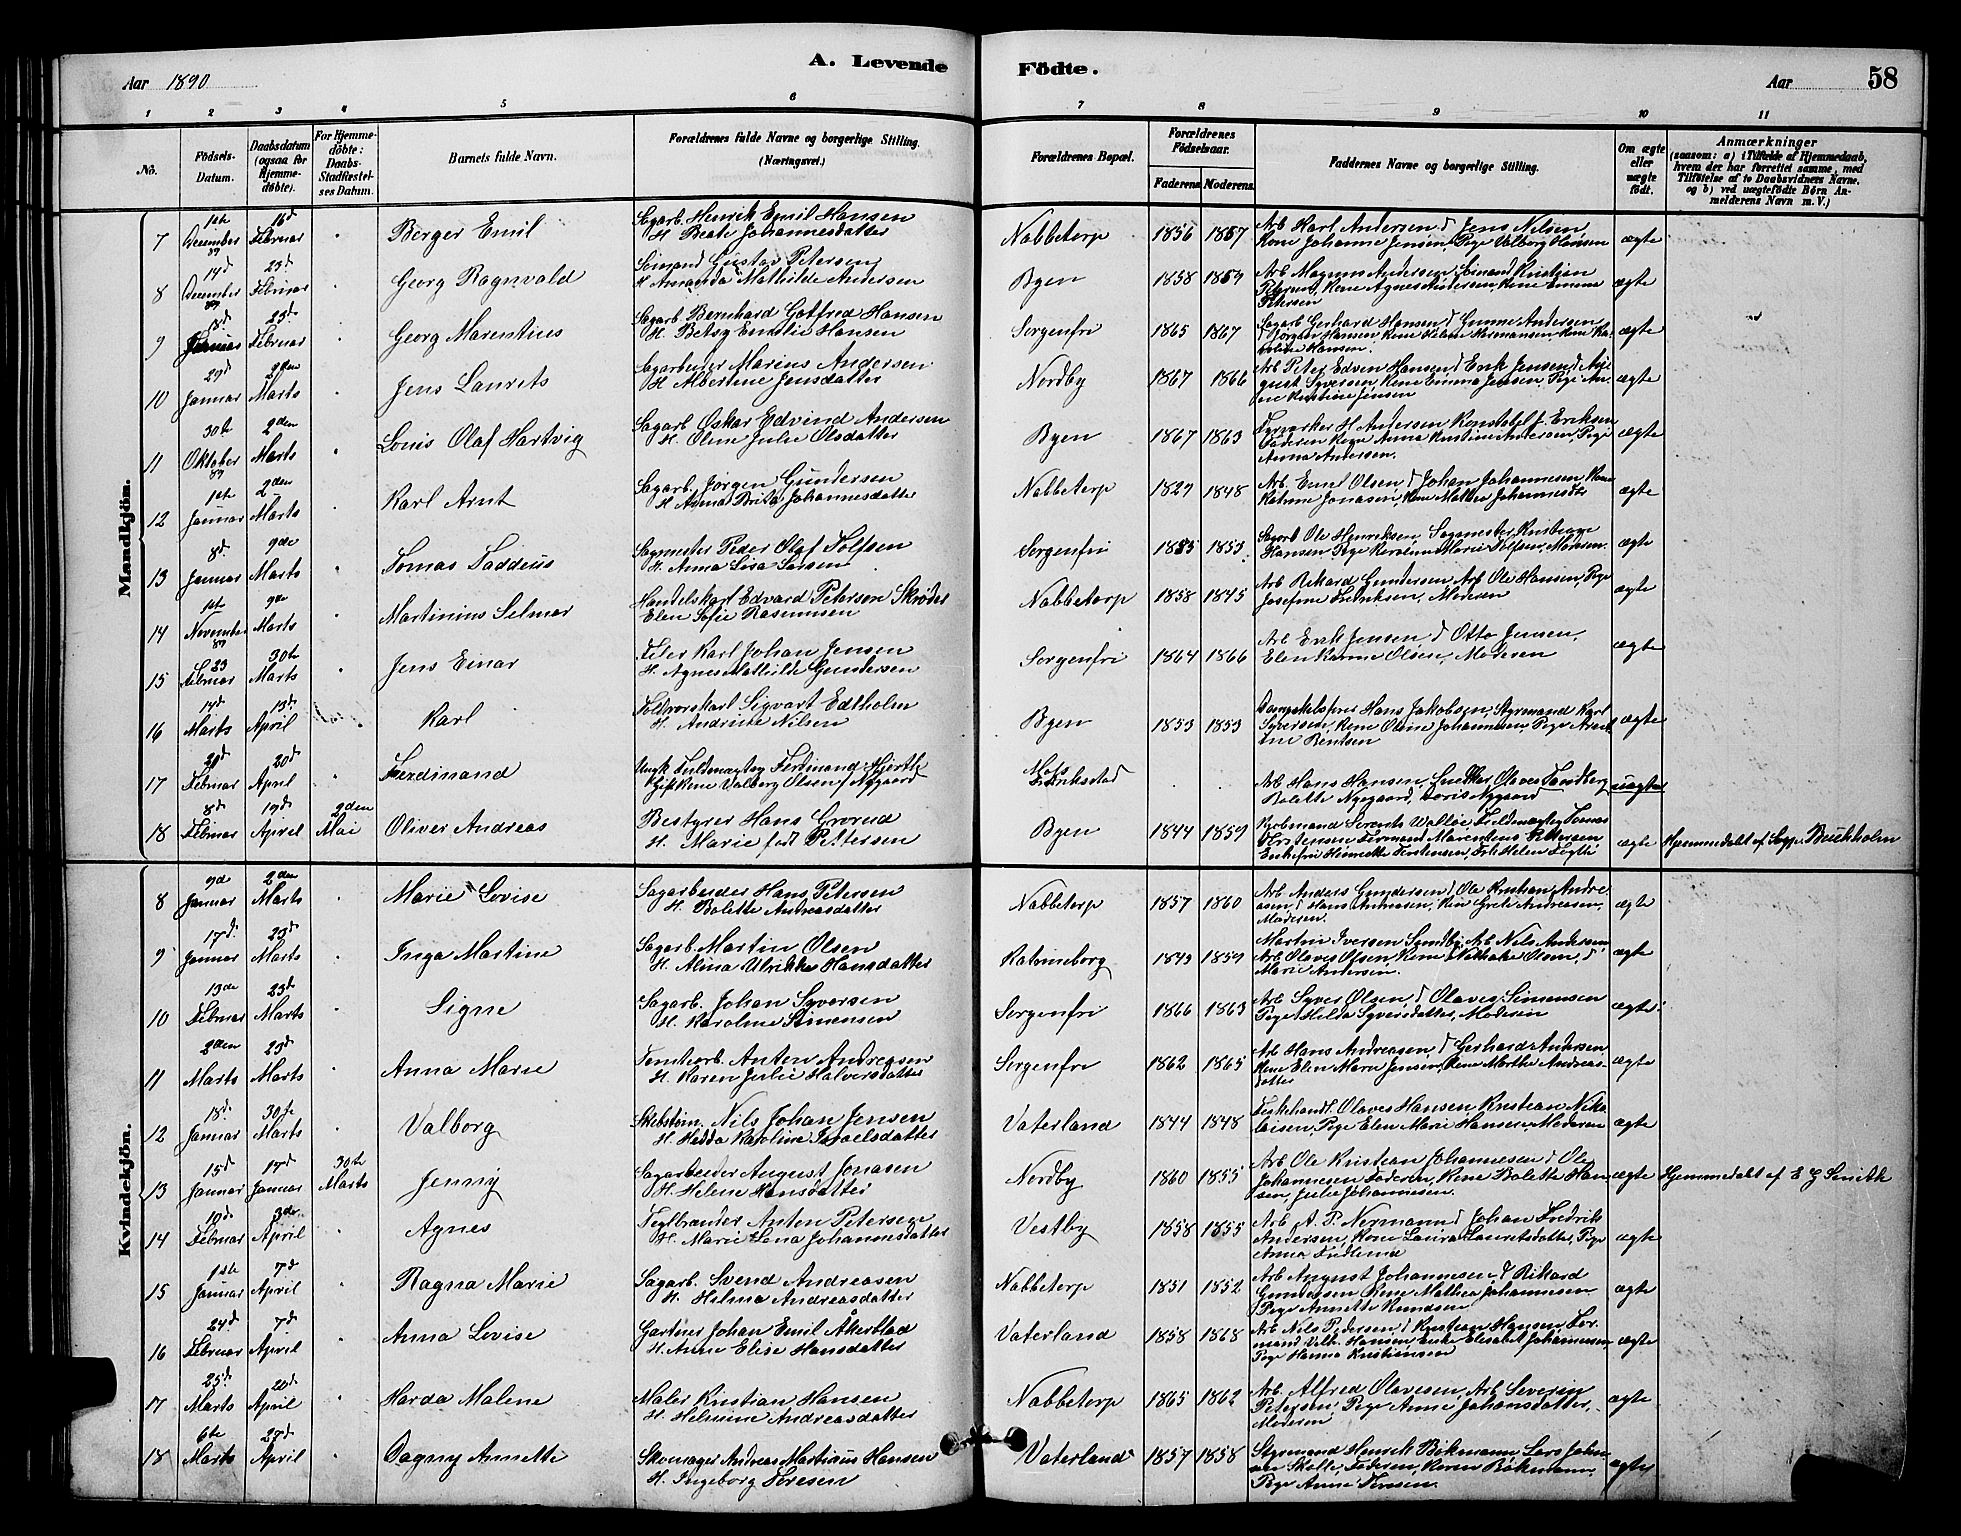 Aar 1890
A. Levende
Födte.
Aar
58
1 2 3 4 5 6 7 8 9 10 11
No.
Födsels-Datum.
Daabsdatum (ogsaa for Hjemme-döbte).
For Hjemme-döbte: Daabs-Stadfæstel-ses Datum.
Barnets fulde Navn.
Forældrenes fulde Navne og borgerlige Stilling. (Næringsvei.)
Forældrenes Bopæl.
Forældrenes Födselsaar.
Faderens. Moderens.
Faddernes Navne og borgerlige Stilling.
Om ægte eller uægte födt.
Anmærkninger
(saasom: a) i Tilfælde af Hjemmedaab, hvem der har forrettet samme, med Tilföielse af to Daabsvidners Navne, og b) ved uægtefödte Börn An-melderens Navn m. V.)
Mandkjön.
7 1ste December 89 16d Februar Berger Emil Sagarb. Henrik Emil Hansen H. Beate Johannesdatter Nabbetorp 1856 1857 Arb Karl Andersen, d Jens Nilsen, Kone Johanne Jensen, Pige Valborg Hansen ægte
8 14d December 89 23d Februar Georg Ragnvald Sömand Gustav Petersen H. Amanda Mathilde Andersen Byen 1858 1859 Arb Magnus Andersen, Sömand Kristian Petersen, Kone Agnes Andersen, Kone Emma Petersen ægte
9 Januar 23d Februar Georg Marentius Sagarb Bernhard Gotfred Hansen H. Betsy Emilie Hansen Sorgenfri 1865 1867 Sagarb Gerhard Hansen, d Gunne Andersen, d Jörgen Hansen, Kone Helene Hermansen, Kone Karoline Hansen. ægte
10 29d Januar 2den Marts Jens Laurits Sagarbeider Marius Andersen H. Albertine Jensdatter Nordby 1867 1866 Arb Peter Edvin Hansen, d Erik Jensen, d August Syversen, Kone Emma Jensen, Pige Kristine Jensen ægte
11 30te Oktober 89 2den Marts Louis Olaf Hartvig Sagarb Oskar Edvind Andersen H. Oline Julie Olsdatter Byen 1867 1863 H. Andersen Konstabel J. Eriksen Faderen Kone Anna Kristine Andersen, Pige Anna Andersen. ægte
12 1ste Januar 2den Marts Karl Arnt Sagarb. Jörgen Gundersen H. Anna Brita Johannesdatter Nabbetorp 1829 1848 Arb Emil Olsen, d Johan Johannesen, Kone Katrine Jonasen, Kone Mathea Johannesdtr ægte
13 8d. Januar 9de Marts Tomas Taddeus Sagmester Peder Olaf Tolfsen H. Anna Lisa Larsen Sorgenfri 1855 1853 Sagarb Ole Henriksen, Sagmester Hansen Pige Marie Tolfsen, Moderen. ægte
14 1ste November 89 9de Marts Martinius Selmar Handelskarl Edvard Petersen Skröder Elen Sofie Rasmussen Nabbetorp 1858 1845 Arb Rikard Gundersen, Arb Ole Hansen, Pige Josefine Fredriksen, Moderen ægte
15 23 Februar 30te Marts Jens Einar Karl Johan Jensen H. Agnes Mathilde Gundersen Sorgenfri 1864 1866 Arb Erik Jensen, d Otto Jensen, Elen Karine Olsen, Moderen ægte
16 14d Marts 13d April Karl Sigvart Edtholm H. Andrine Nilsen Byen 1853 1853 Hans Jakobsen, Styrmand Karl Syversen, Kone Oline Johannesen, Pige Bentsen ægte
17 20d Februar 20d April Ferdinand Ungk Fuldmægtig Ferdinand Hjorth Gift Kone Valborg Olsen f Nygaard Moss Fredrikstad Arb Hans Hansen, Snedker Olaves Sandberg Bolette Nygaard, Nygaard uægte
18 8d Februar 19d April 2den Mai Oliver Andreas Bestyrer Hans Grorud H. Marie födt Pettersen Byen 1844 1859 Kjöbmand Lorents Walløe Fuldmægtig Tomas Torstensen Formand Marentius Pettersen Enkefru Torstensen, Frk Helen ægte Hjemmedöbt af Sogp. Buckholm
Kvindekjön.
8 9d Januar 2den Marts Marie Lovise Sagarbeider Hans Petersen H. Bolette Andreasdatter Nabbetorp 1857 1860 Arb Anders Gundersen, d Ole Kristian Andreasen, d Hans Andreasen, Kone Grete Andreasen, Moderen. ægte
9 17d. Januar 23d Marts Inga Martine Sagarb. Martin Olsen H. Alma Ulrikke Hansdatter Katrineborg 1849 1859 Martin Iversen Sundby, Arb Nils Andersen, Arb Olaves Olsen, Kone Nathalie Olsen, d Marie Andersen. ægte
10 13de Februar 23d Marts Signe Sagarb. Johan Syversen H. Karoline Simensen Sorgenfri 1866 1863 Arb Syver Olsen, d Olaves Simensen Pige Hilda Syversdatter, Moderen ægte
11 2den Marts 23d Marts Anna Marie Tomtearb. Anton Andreasen H. Karen Julie Halversdatter Sorgenfri 1862 1865 Arb Hans Andreasen, d Gerhard Andersen Kone Elen Marie Jensen, Kone Marthe Andreasdatter ægte
12 18d. Januar 30te Marts Valborg Skibstöm. Nils Johan Jensen H. Hedda Karoline Israelsdatter Vaterland 1844 1848 Fiskehandl. Olaves Hansen Kristian Nikolaisen, Pige Elen Marie Hansen, Moderen ægte
13 15d Januar 17d Januar 30te Marts Jenny Sagarbeider August Jonasen H. Helene Hansdatter Nordby 1860 1855 Arb Ole Kristian Johannesen, d Ole Johannesen Faderen, Kone Bolette Hansen, Julie Johannesen. ægte Hjemmedöbt af E G Smith
14 10d Februar 3die April Agnes Teglbrænder Anton Petersen H. Marie Lena Johannesdatter Vestby 1858 1855 Arb A. P. Nermann, d Johan Fredrik Andersen, Kone Laura Lauritsdatter, Pige Anna ægte
15 1ste Januar 7d April Ragna Marie Sagarb. Svend Andreasen H. Helma Andreasdatter Nabbetorp 1851 1852 Arb August Johannesen, d Rikard Gundersen Kone Mathea Johannesen Pige Annette Knudsen ægte
16 24d Februar 7d April Anna Lovise Gartner Johan Emil Åkerblad H. Anne Elise Hansdatter Vaterland 1858 1868 Arb Nils Pedersen, d Kristian Hansen, Formand Vilh. Hansen, Enke Elisabet Johannesen, Pige Hanna Kristiansen ægte
17 25d Marts 20d April Harda Malene Maler Kristian Hansen H. Helmine Andreasdatter Nabbetorp 1865 1862 Arb. Alfred Olavesen, Arb Severin Petersen, Pige Anne Johansdatter, Moderen ægte
18 6te Marts 27d April Dagny Annette Skomager Andreas Martinius Hansen H. Ingeborg Toresen Vaterland 1857 1858 Styrmand Henrik Bökmann, Lars Skolle, Faderen, Karen Bökmann, Pige Anne Toresen. ægte